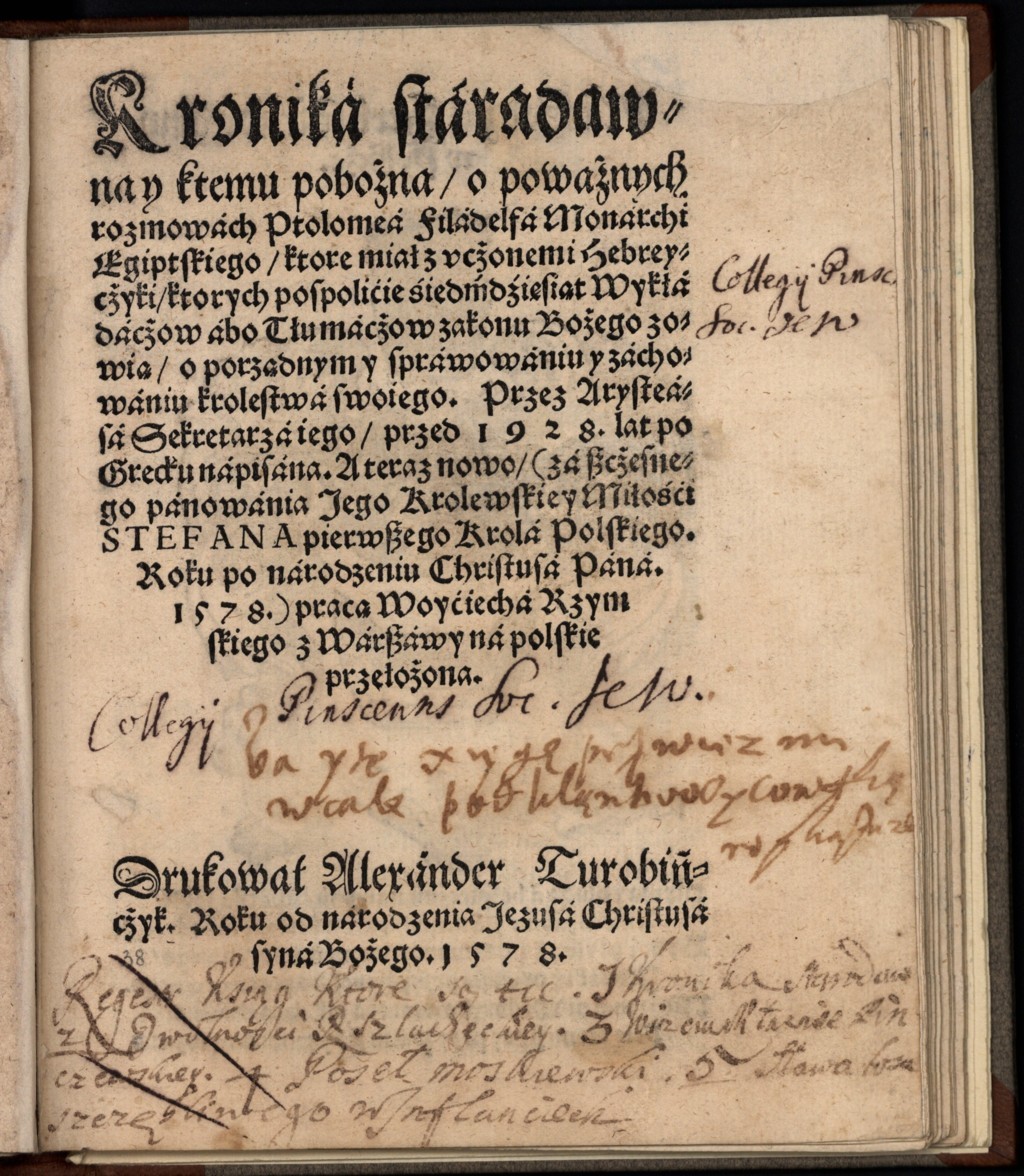 Kroniká stáradaw⸗
na y ktemu pobożna / o poważnych
rozmowách Ptolomeá Filádelfá Monárchi
Egiptskiego / ktore miał z vcżonemi Hebrey⸗
cżyki / ktorych pospolićie śiedmdźieśiąt Wykłá
dácżow ábo Tłumácżow zakonu Bożego zo⸗
wią / o porządnym y spráwowániu y zácho⸗
wániu krolestwá swoiego. Przez Arysteá⸗
sá Sekretarzá iego / przed 1928. lat po
Grecku nápisána. A teraz nowo / (zá szcżęsne⸗
go pánowánia Jego Krolewskiey Miłośći
STEFANA pierwszego Krolá Polskiego.
Roku po národzeniu Christusá Páná.
1578.) praca Woyćiechá Rzym
skiego z Wárszáwy ná polskie
przełożona.
Collegij Pinsc.
Soc. Jesu
Collegij Pinscenns Soc. Jesu.
wcale
Drukował Alexánder Turobiń⸗
cżyk. Roku od národzenia Jezusá Christusá
syná Bożego. 1578.
38
Regestr Ksiąg Ktore są tu. 1 Kronika Starodaw
2 O wolności Szlacheckiey. 3
4 Poseł moskiewski. 5 Sława